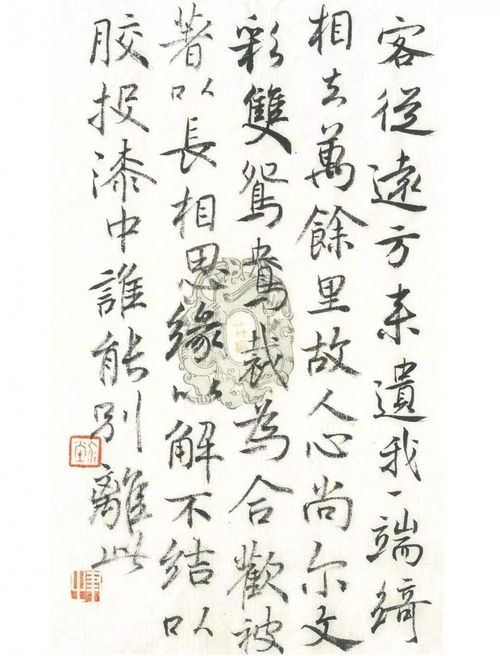 客從遠方来遺我一端綺
相去萬餘里故人心尚尔文
彩雙鴛鴦裁為合歡被
著以長相思緣以解不结以
胶投漆中誰能别離此